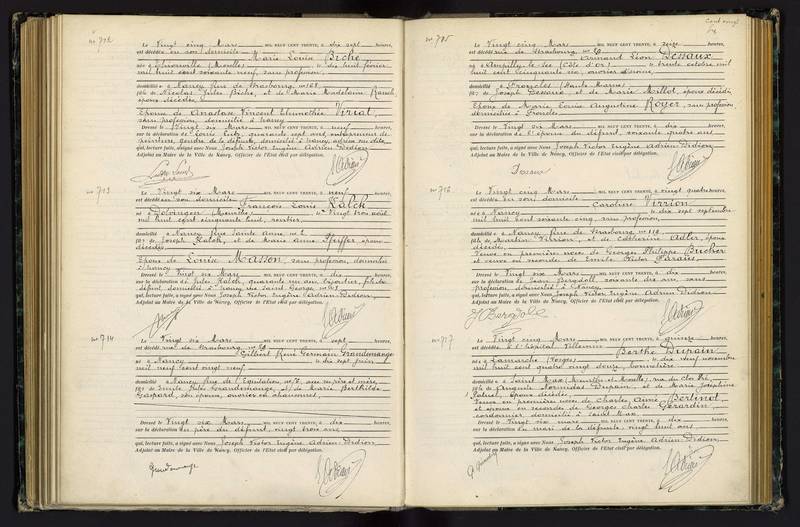 n° 712
Le Vingt cinq Mars MIL NEUF CENT TRENTE, à dix sept heures,
est décédée en son domicile Marie Louise Biche
née à Thionville (Moselle) le dix huit février
mil huit cent soixante neuf, sans profession,
domiciliée à Nancy rue de Strasbourg n° 168
fille de Nicolas Jules Biche, et de Marie Madeleine Rauch,
époux décédés,
Epouse de Anastase Vincent Thimothée Virriat,
sans profession, domicilié à Nancy
Dressé le Vingt six Mars MIL NEUF CENT TRENTE, à neuf heures,
sur la déclaration de Louis quarante sept ans, entrepreneur de
peinture, gendre de la défunte, domicilié à Nancy,
qui, lecture faite, a signé avec Nous Joseph Victor Eugène Adrien Didion,
Adjoint au Maire de la Ville de Nancy, Officier de l'État civil par délégation.
n° 713
Le Vingt six Mars MIL NEUF CENT TRENTE, à neuf heures,
est décédé en son domicile François Louis Kalck
né à Dolvingen (Moselle) le vingt trois août
mil huit cent cinquante huit, rentier,
domicilié à Nancy rue Sainte Anne n° 2
fils de Joseph Kalck, et de Marie Anne Pfeiffer, époux
décédés,
Epoux de Louise Masson, sans profession, domiciliée
à Nancy
Dressé le Vingt six Mars MIL NEUF CENT TRENTE, à dix heures,
sur la déclaration de Jules Kalck, quarante un ans, bijoutier, fils du
défunt, domicilié à Nancy rue Saint George n° 49
qui, lecture faite, a signé avec Nous Joseph Victor Eugène Adrien Didion,
Adjoint au Maire de la Ville de Nancy, Officier de l'État civil par délégation.
n° 714
Le Vingt six Mars MIL NEUF CENT TRENTE, à sept heures,
est décédé rue de Strasbourg n°
Gilbert René Germain Grandemange
né à Nancy le dix sept juin
mil neuf cent vingt neuf
domicilié à Nancy rue de l'Equitation, n° 7, avec ses père et mère,
fils de Emile Jules Grandemange, et de Marie Berthilde
Gaspard, son épouse, ouvriers en chaussures,
Dressé le Vingt six Mars MIL NEUF CENT TRENTE, à dix heures,
sur la déclaration du père du défunt, vingt trois ans
qui, lecture faite, a signé avec Nous Joseph Victor Eugène Adrien Didion,
Adjoint au Maire de la Ville de Nancy, Officier de l'État civil par délégation.
Grandemange
Cent vingt
n° 715
Le Vingt cinq Mars MIL NEUF CENT TRENTE, à seize heures,
est décédé rue de Strasbourg, n°
Armand Léon Dessaux
né à Ampilly le Sec (Côte d'Or) le trente octobre mil
huit cent cinquante six, ouvrier d'usine,
domicilié à Froncles (Haute Marne)
fils de Joseph Dessaux et de Marie Maillot, époux décédés,
Epoux de Marie Louise Augustine Royer, sans profession,
domiciliée à Froncles,
Dressé le Vingt six Mars MIL NEUF CENT TRENTE, à dix heures,
sur la déclaration de l'épouse du défunt, soixante quatre ans,
qui, lecture faite, a signé avec Nous Joseph Victor Eugène Adrien Didion,
Adjoint au Maire de la Ville de Nancy, Officier de l'État civil par délégation.
n° 716
Le Vingt cinq Mars MIL NEUF CENT TRENTE, à vingt quatre heures,
est décédée en son domicile Caroline Virrion
née à Nancy le dix sept septembre
mil huit cent soixante cinq, sans profession,
domiciliée à Nancy rue de Strasbourg n° 110
fille de Martin Virrion, et de Catherine Adler, époux
décédés,
Veuve en premières noces de Georges Philippe Bucher
et veuve en secondes de Emile Victor Parades
Dressé le Vingt six Mars MIL NEUF CENT TRENTE, à dix heures,
sur la déclaration de Jean Bergdoll, soixante dix ans, sans
profession, domicilié à Nancy,
qui, lecture faite, a signé avec Nous Joseph Victor Eugène Adrien Didion,
Adjoint au Maire de la Ville de Nancy, Officier de l'État civil par délégation.
J Bergdoll
n° 717
Le Vingt cinq Mars MIL NEUF CENT TRENTE, à quinze heures,
est décédée à l'hôpital Villemin
Berthe Duprain
née à Lamarche (Vosges) le dix neuf novembre
mil huit cent quatre vingt douze, bonnetière
domiciliée à Saint Max (Meurthe et Moselle), rue du
fille de Auguste Dormidas Duprain, et de Marie Joséphine
époux décédés,
Veuve en premières noces de Charles Aimé Berlinot
et épouse en secondes de Georges Charles Gérardin,
cordonnier, domicilié à Saint Max
Dressé le Vingt six Mars MIL NEUF CENT TRENTE, à dix heures,
sur la déclaration du mari de la défunte, vingt huit ans
qui, lecture faite, a signé avec Nous Joseph Victor Eugène Adrien Didion,
Adjoint au Maire de la Ville de Nancy, Officier de l'État civil par délégation.